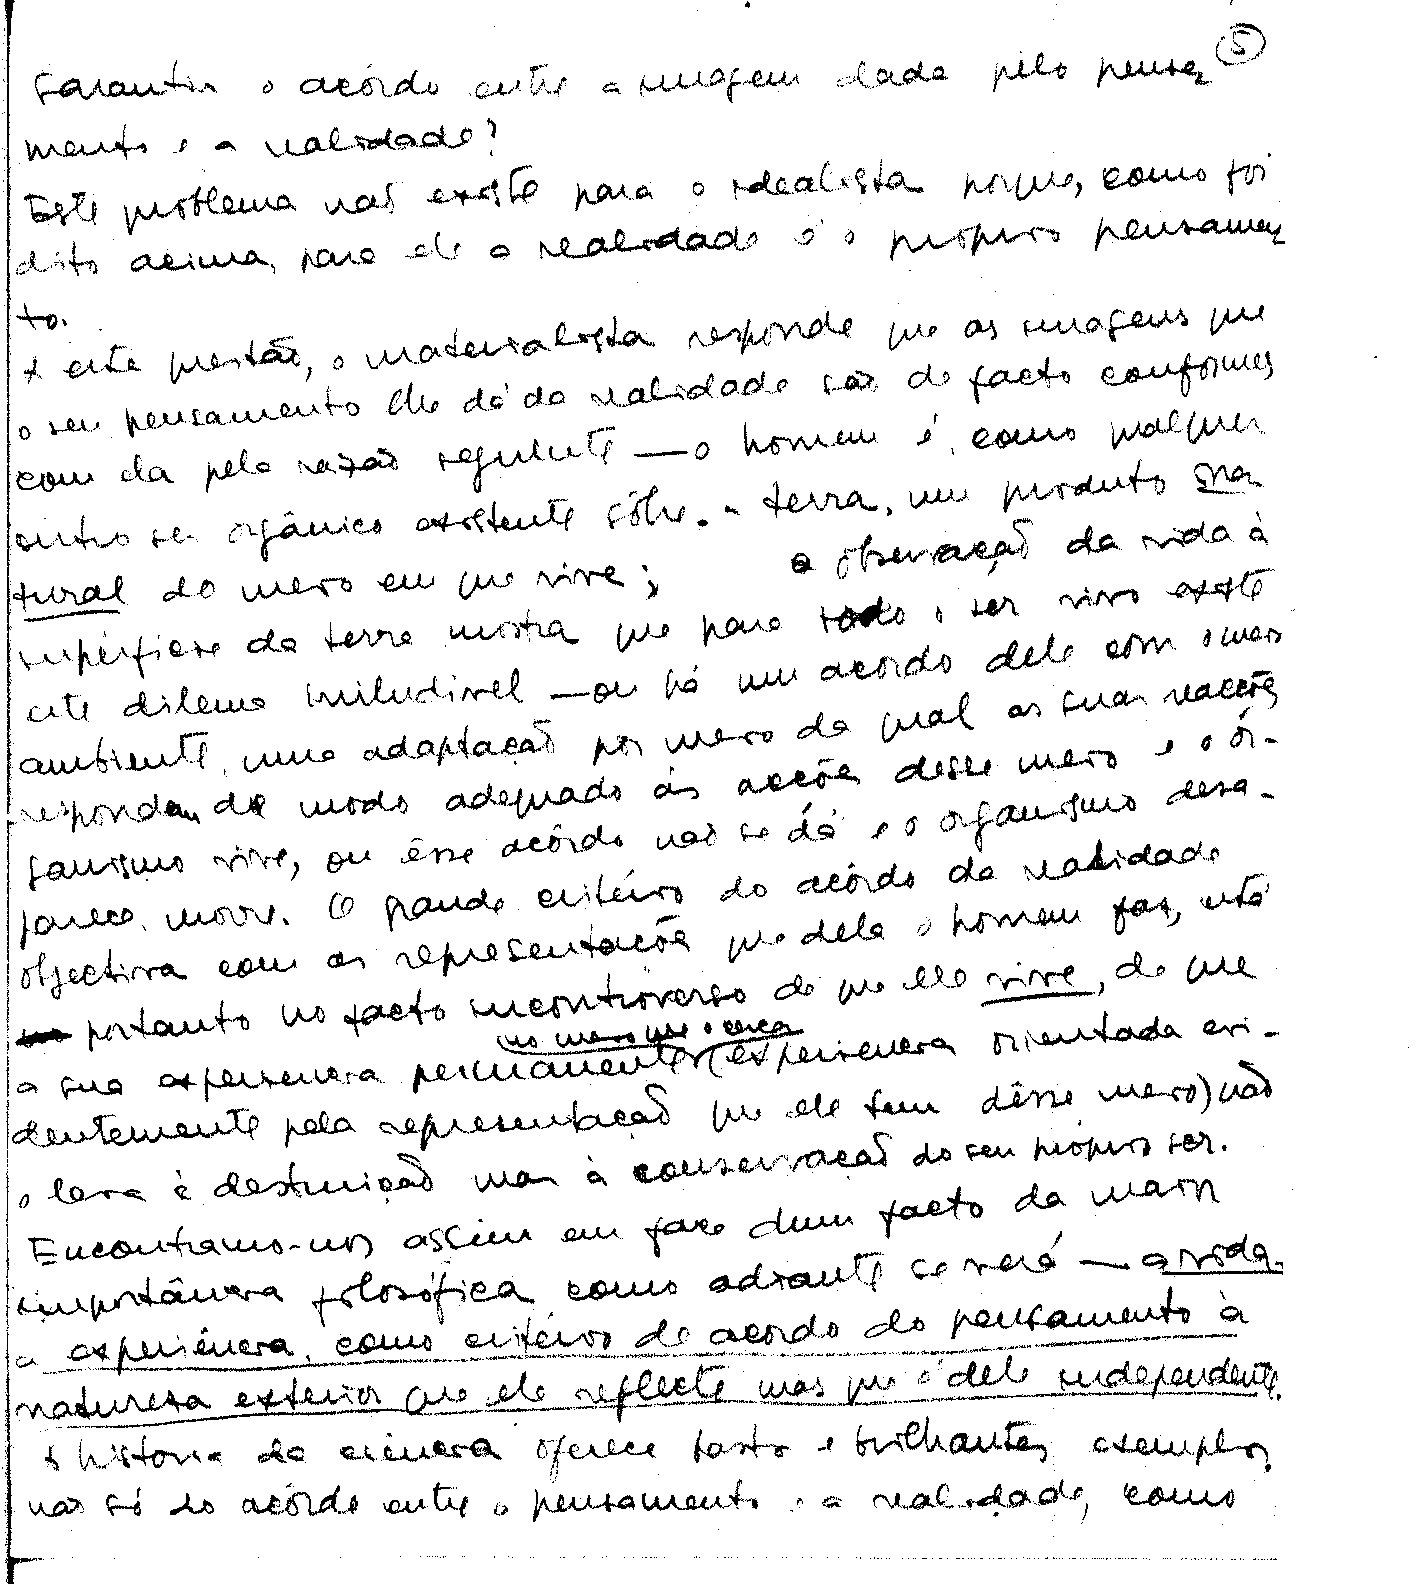 5
garantir o acôrdo entre a imagem dada pelo pensa
mento e a realidade?
Este problema não existe para o idealista porque, como foi
dito acima, para ele a realidade é o próprio pensamen
to.
A esta questão, o materialista responde que as imagens que
o seu pensamento lhe dá da realidade são de facto conformes
com ela pela razão seguinte — o homem é, como qualquer
outro ser orgânico existente sôbre a terra, um produto na
tural do meio em que vive; a observação da vida à
superfície da terra mostra que para todo o ser vivo existe
este dilema iniludível — ou há um acordo dele com o meio
ambiente, uma adaptação por meio da qual as suas reacções
respondem de modo adequado às acções desse meio e o or-
ganismo vive, ou êsse acôrdo não se dá e o organismo desa-
parece, morre. O grande critério do acôrdo da realidade
objectiva com as representações que dela o homem faz, está
portanto no facto incontroverso de que ele vive, de que
no meio que o cerca
a sua experiência permanente (experiência orientada evi-
dentemente pela representação que ele tem dêsse meio) não
o leva à destruição mas à conservação do seu próprio ser.
Encontramo-nos assim em face dum facto da maior
importância filosófica como adiante se verá — a vida,
a experiência, como critério de acordo do pensamento à
natureza exterior que ele reflecte mas que é dele independente.
A história da ciência oferece fartos e brilhantes exemplos,
não só do acôrdo entre o pensamento e a realidade, como